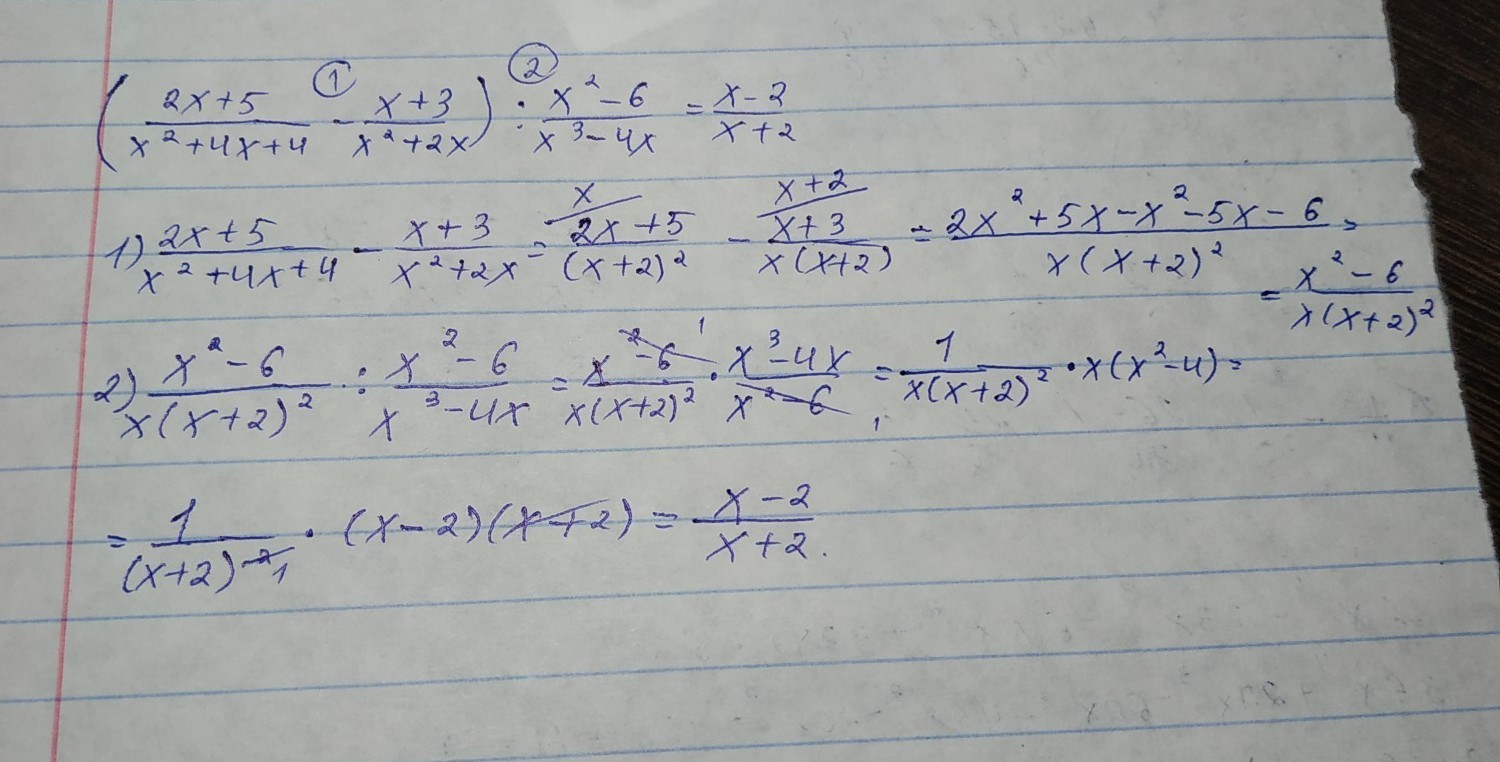 ① ②
(2x+5/x²+4x+4 - x+3/x²+2x) : x²-6/x³-4x = x-2/x+2
1) 2x+5/x²+4x+4 - x+3/x²+2x = x/ 2x+5/(x+2)² - x+2/ x+3/x(x+2) = 2x²+5x-x²-5x-6/x(x+2)² =
= x²-6/x(x+2)²
2) x²-6/x(x+2)² : x²-6/x³-4x = x²-6 1/x(x+2)² · x³-4x/x²-6 1 = 1/x(x+2)² · x(x²-4) =
= 1/(x+2)²1 · (x-2)(x+2) = x-2/x+2.